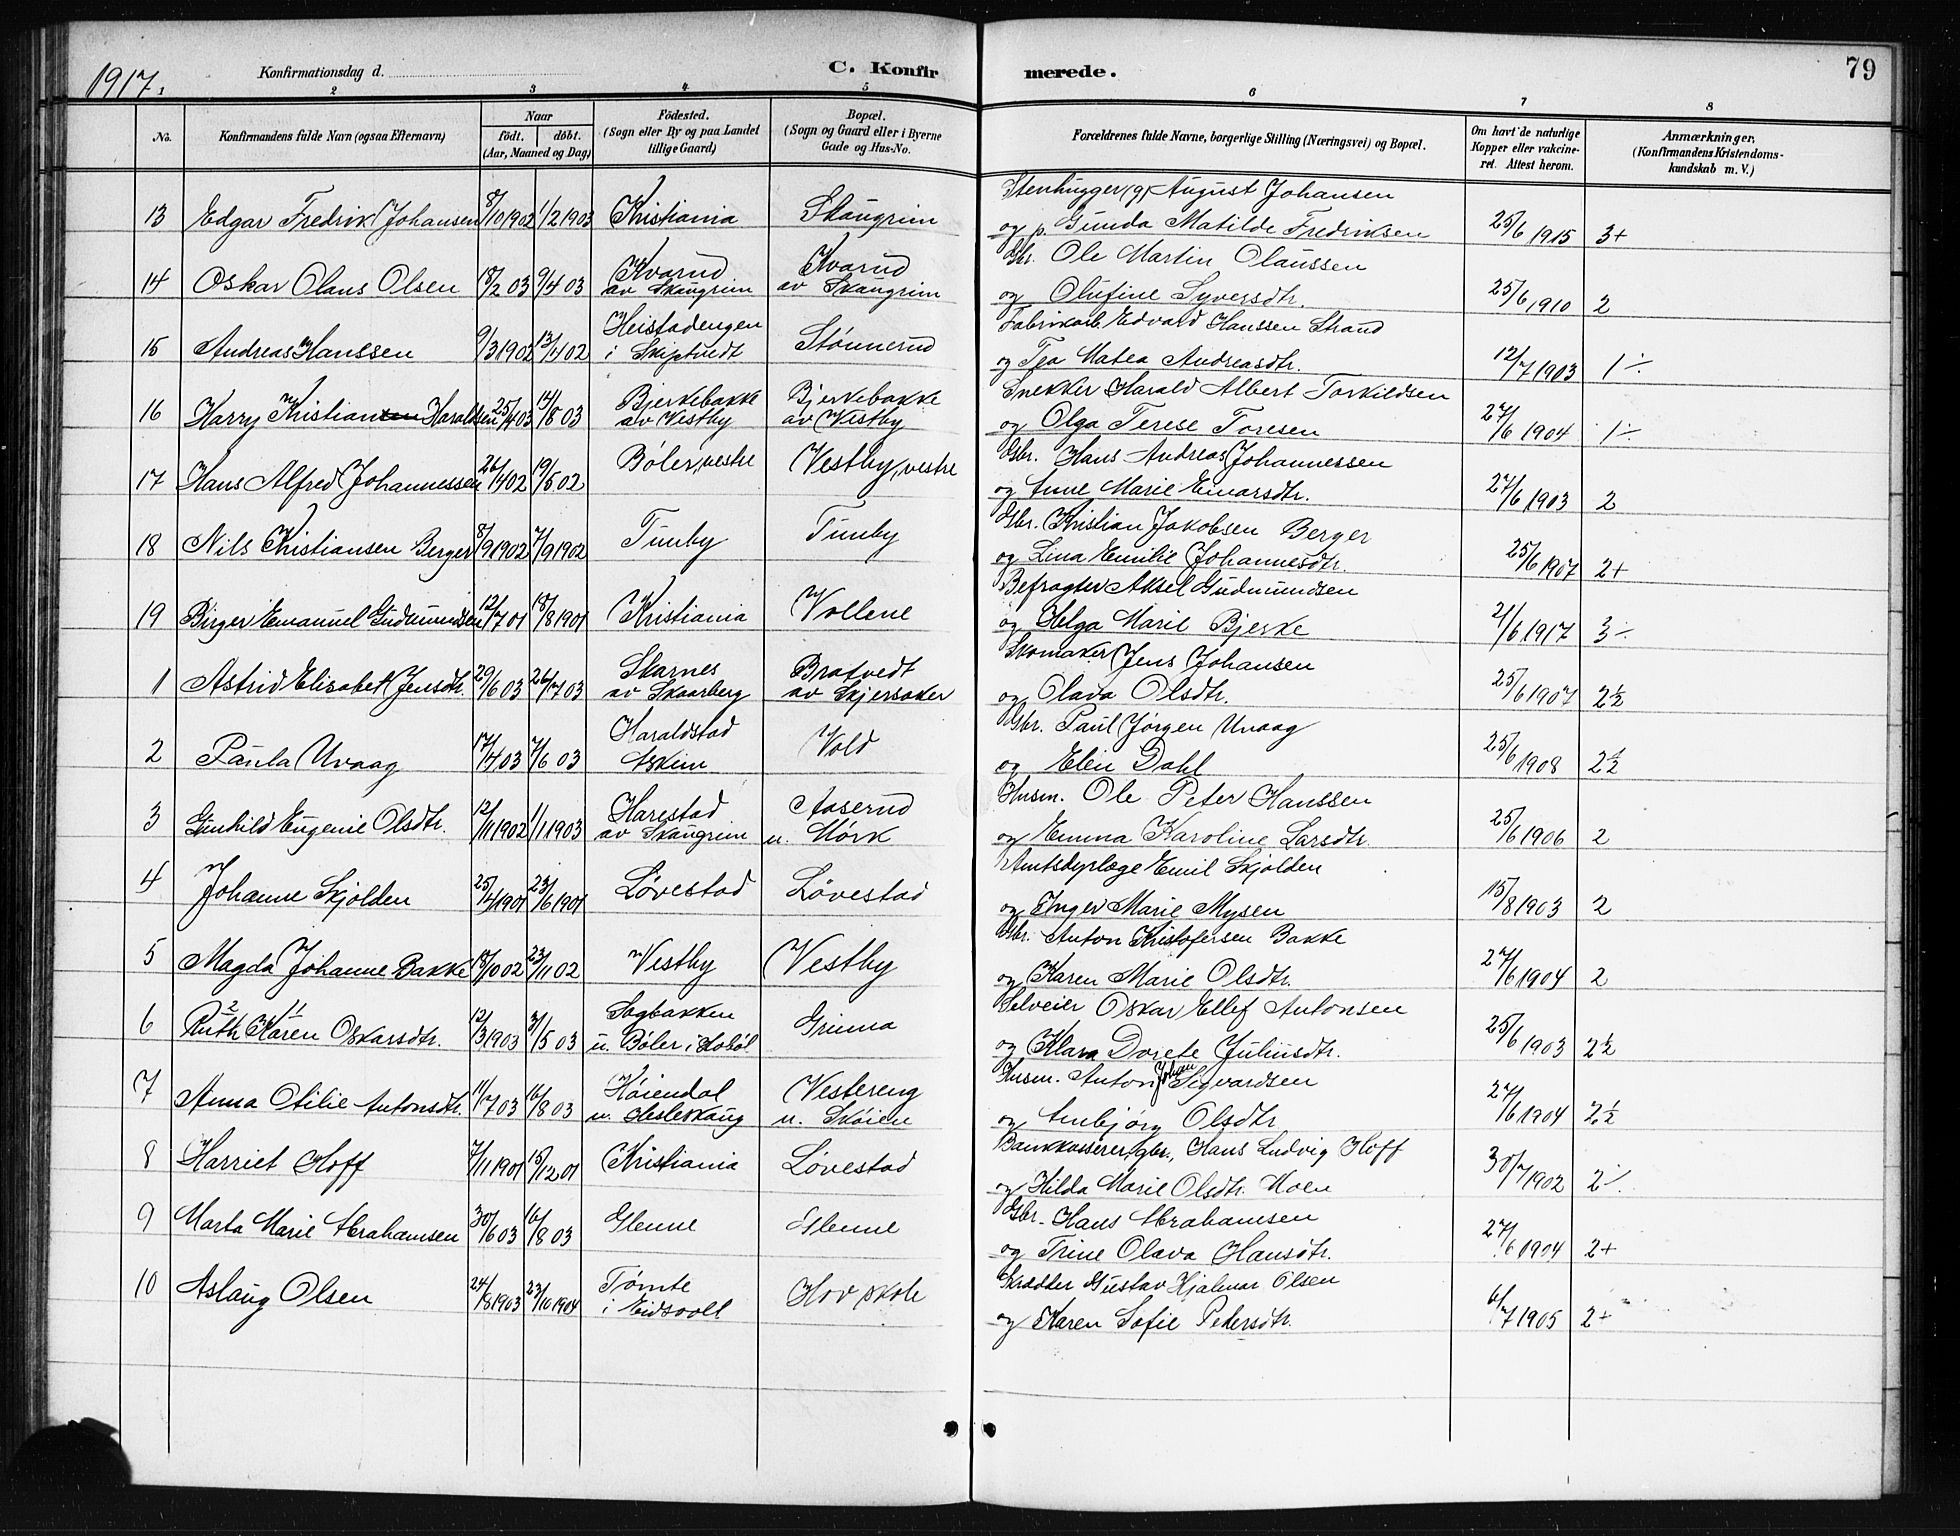 1917.
Konfirmationsdag d.
C. Konfir
merede.
79
2 3 4 5 6 7 8
No.
Konfirmandens fulde Navn (ogsaa Efternavn)
Naar
født. døbt.
(Aar, Maaned og Dag)
Fødested.
(Sogn eller By og paa Landet
tillige Gaard)
Bopæl.
(Sogn og Gaard eller i Byerne
Gade og Hus-No.
Forældrenes fulde Navne, borgerlige Stilling (Næringsvei) og Bopæl.
Om havt de naturlige
Kopper eller vakcine-
ret. Attest herom.
Anmærkninger,
(Konfirmandens Kristendoms-
kundskab m. V.)
Stenhugger (g) August Johansen
13 Edgar Fredrik Johansen 8/10 1902 1/2 1903 Kristiania Skaugrim og p. Gunda Matilde Fredriksen 25/6 1915 3+
Gbr. Ole Martin Olaussen
14 Oskar Olaus Olsen 18/2 03 9/4 03 Kvarud av Skaugrim Kvarud av Skaugrim og Olufine Syversdtr. 25/6 1910 2
Fabrikarb. Edvard Hanssen Strand
15 Andreas Hanssen 9/3 1902 13/4 02 Heistadengen i Skiptvedt Stønnerud og Tea Matea Andreasdtr. 12/7 1903 1÷
Snekker Harald Albert Torkildsen
16 Harry Kristian Haraldsen 25/4 03 14/8 03 Bjerkebakke av Vestby Bjerkebakke av Vestby og Olga Terese Toresen 27/6 1904 1÷
Gbr. Hans Andreas Johannessen
17 Hans Alfred Johannessen 26/4 02 19/5 02 Bøler, vestre Vestby, vestre og Anne Marie Einarsdtr. 27/6 1903 2
Gbr. Kristian Jakobsen Berger
18 Nils Kristiansen Berger 8/9 1902 7/9 1902 Tunby Tunby og Lina Emilie Johannesdtr. 25/6 1907 2+
Befragter Aksel Gudmundsen
19 Birger Emanuel Gudmundsen 12/7 01 18/8 1901 Kristiania Vollene og Helga Marie Bjerke 21/6 1917 3÷
Skomaker Jens Johansen
1 Astrid Elisabet Jensdtr. 29/6 03 26/7 03 Skarnes av Skaarberg Bratvedt av Skjersaker og Olava Olsdtr. 25/6 1907 2½
Gbr. Paul Jørgen Uvaag
2 Paula Uvaag 17/4 03 7/6 03 Haraldstad Askim Vold og Elen Dahl 25/6 1908 2½
Husm. Ole Peter Hanssen
3 Gunhild Eugenie Olsdtr. 12/11 1902 1/1 1903 Harestad av Skaugrim Aaserud u. Mørk og Emma Karoline Larsdtr. 25/6 1906 2
Amtsdyrlæge Emil Skjolden
4 Johanne Skjolden 25/4 1901 23/6 1901 Løvestad Løvestad og Inger Marie Mysen 15/8 1903 2
Gbr. Anton Kristofersen Bakke
5 Magda Johanne Bakke 18/10 02 23/11 02 Vestby Vestby og Karen Marie Olsdtr. 27/6 1904 2
Selveier Oskar Ellef Antonsen
2 1
6 Ruth Karen Oskarsdtr. 12/3 1903 3/5 03 Sagbakken u. Bøler i Hobøl Grinna og Klara Dorete Juliusdtr. 25/6 1903 2½
Husm. Anton Johan Sigvardsen
7 Anna Otilie Antonsdtr. 11/7 03 16/8 03 Høiendal u. Hasleskaug Vestereng u. Skøien og Anbjørg Olsdtr 27/6 1904 2½
Bankkasserer, gbr., Hans Ludvig Hoff
8 Harriet Hoff 7/11 1901 15/12 01 Kristiania Løvestad og Hilda Marie Olsdtr. Moen 30/7 1902 2÷
Gbr. Hans Abrahamsen
9 Marta Marie Abrahamsen 30/6 03 16/8 03 Glenne Glenne og Trine Olava Hansdtr. 27/6 1904 2+
Skrædder Gustav Hjalmar Olsen
10 Aslaug Olsen 24/8 1903 23/10 1904 Tømte i Eidsvoll Hov skole og Karen Sofie Pedersdtr. 6/7 1905 2+